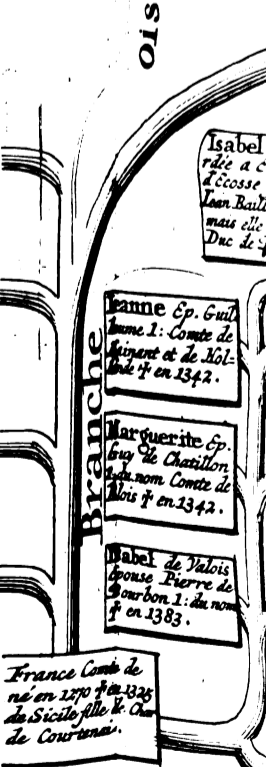 ois
Isabel
rdée a
d'écosse
Iean Baill
mais elle
Duc de
Branche
Ieanne Ep. Guil
laume 1: Comte de
Hainant et de Hol-
lande † en 1342.
Marguerite Ep.
Guy de Chatillon
1. du nom Comte de
Blois † en 1342.
Isabel de Valois
épouse Pierre de
Bourbon 1: du nom
† en 1383.
France Comte de
né en 1270 † en 1325
de Sicile fille de Char
de Courtenai.